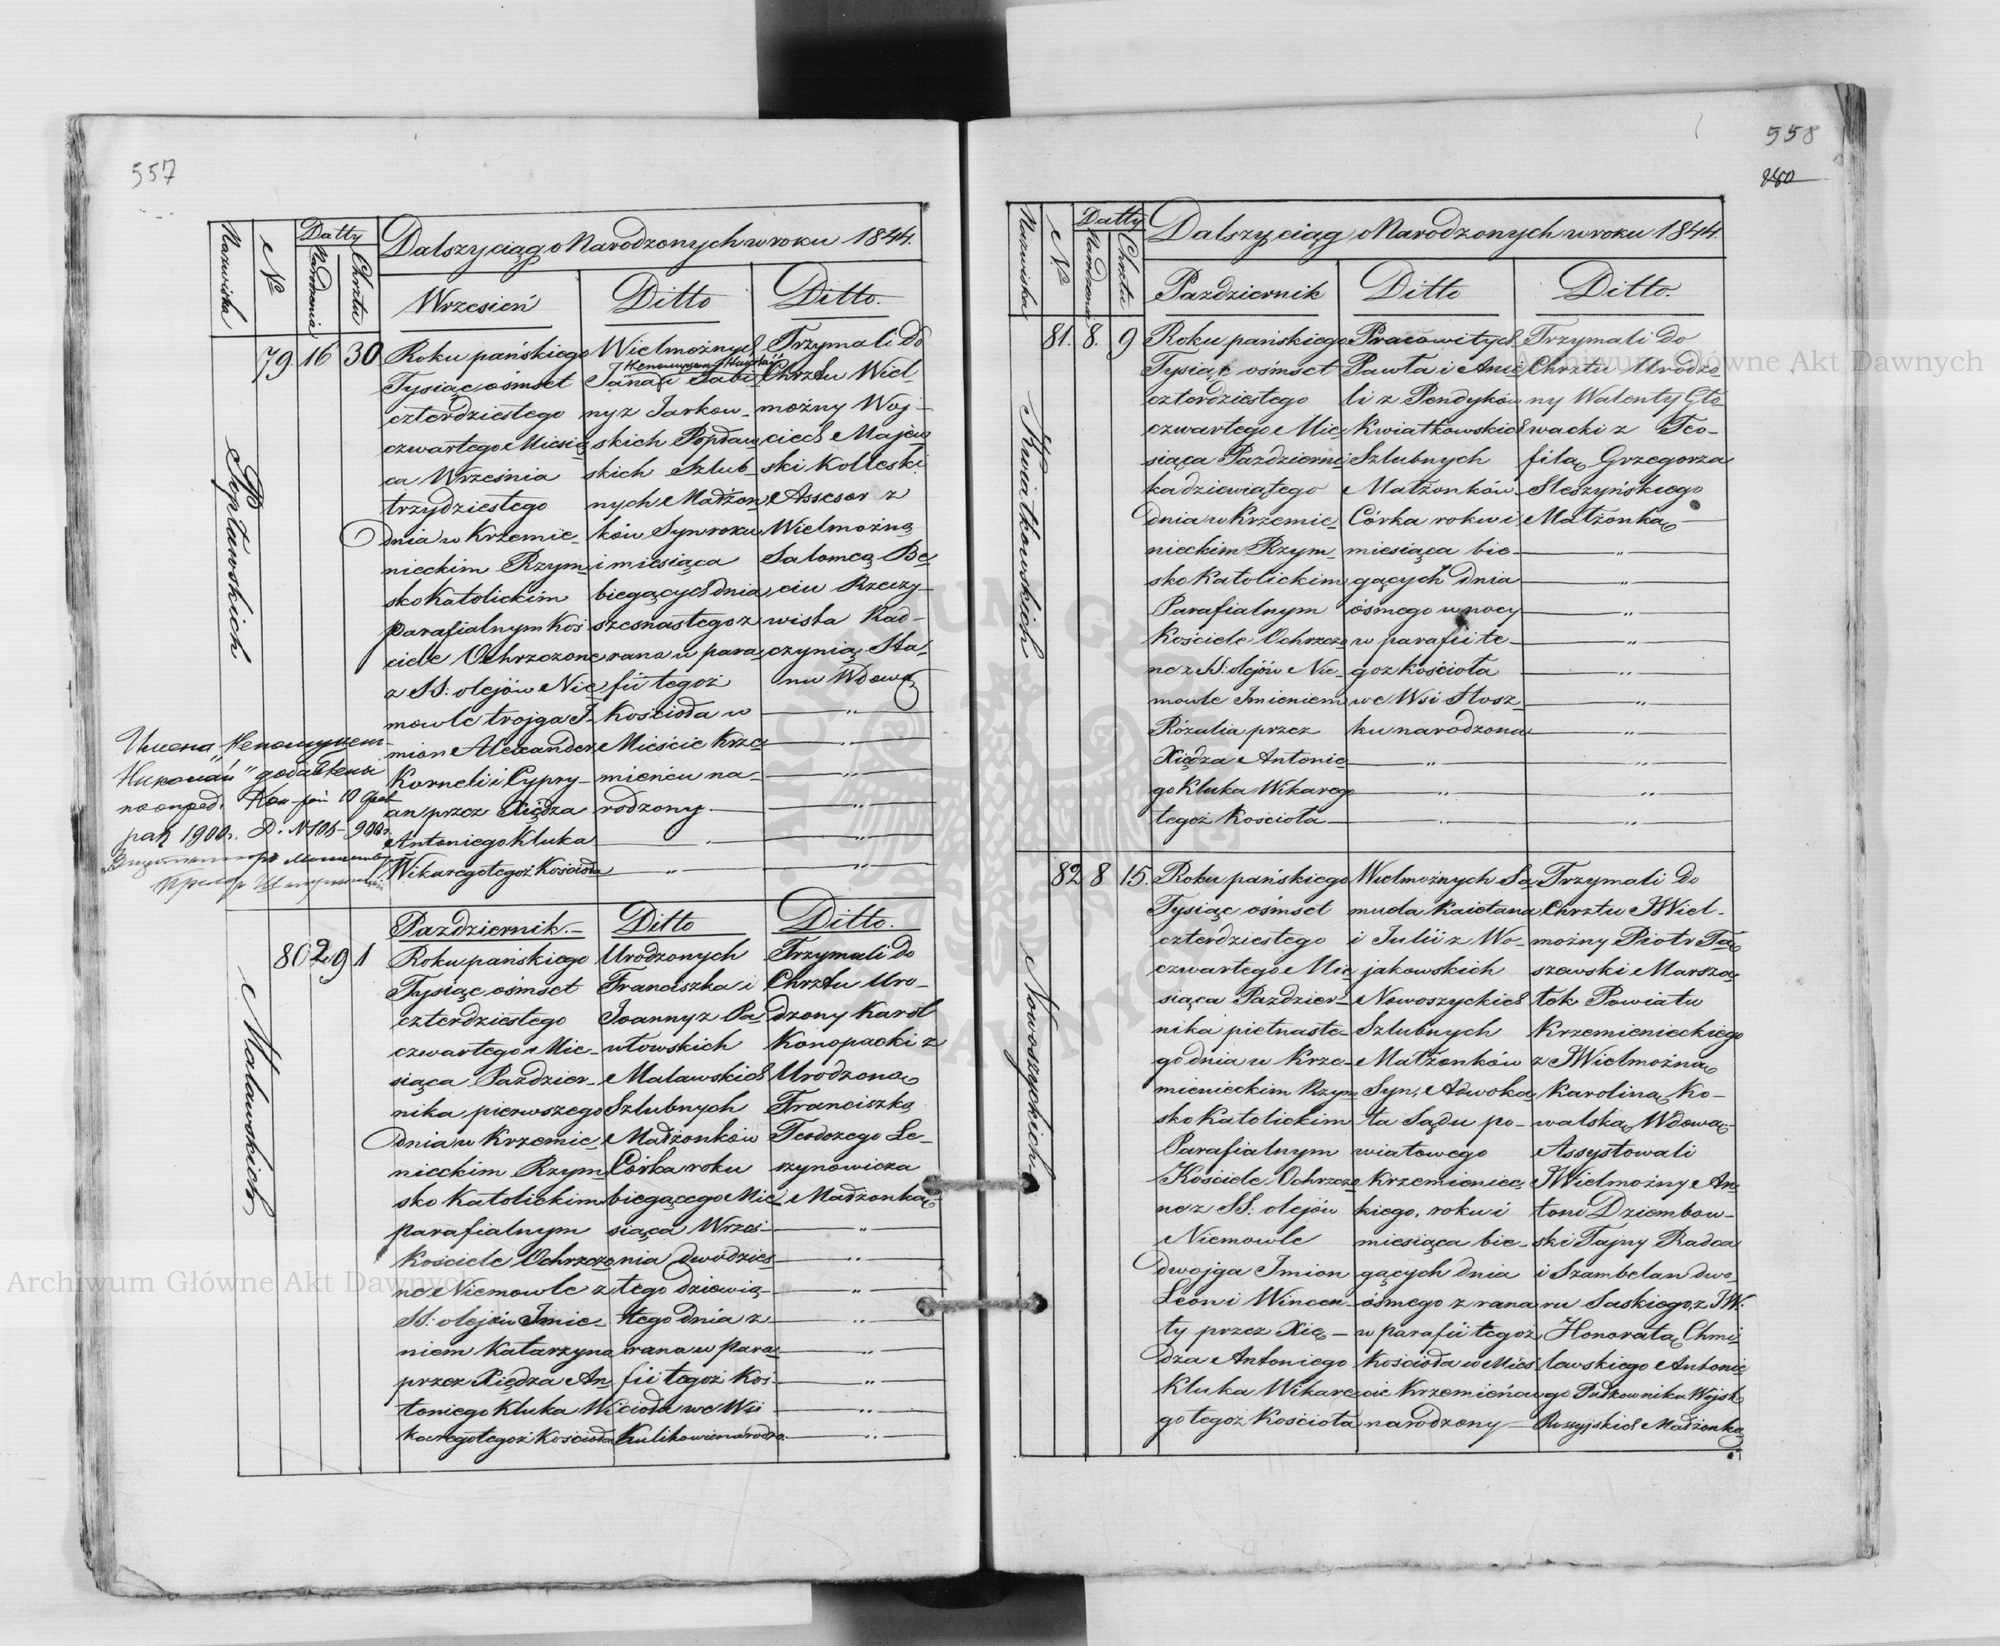 557
Dalszy ciąg o Narodzonych w roku 1844.
Nazwiska
No
Datty
Narodzenia
Chrztu
Wrzesień
Ditto
Ditto.
Popławskich
79. 16 30.
Roku pańskiego
Tysiąc ośmset
czterdziestego
czwartego Miesią
ca Września
trzydziestego
dnia w Krzemie-
nieckim Rzym-
sko Katolickim
parafialnym Koś
ciele Ochrzczone
z SS: olejów Nie
mowle trojga I-
mion Alexander
Korneli i Cypry-
an przez Xiędza
Antoniego Kluka
Wikarego tegoż Kościoła
Wielmożnych
Jana i Sabi
ny z Jarkow-
skich Popław
skich Szlub-
nych Małżon
ków Syn roku
i miesiąca
biegących dnia
szesnastego z
rana w para
fii tegoż
Kościoła w
Mieście Krze
mieńcu na-
rodzony
Trzymali do
Chrztu Wiel-
możny Woj-
ciech Majew
ski Kolleski
Assesor z
Wielmożną
Salomeą Be
ciu Rzeczy-
wista Rad-
czynią Sta-
nu Wdową
1900
Malawskich
Pazdziernik.
Ditto
Ditto.
80. 29 1
Roku pańskiego
Tysiąc ośmset
czterdziestego
czwartego Mie-
siąca Pazdzier-
nika pierwszego
dnia w Krzemie
nieckim Rzym
sko Katolickim
parafialnym
Kościele Ochrzczo
ne Niemowle z
SS: olejów Imie-
niem Katarzyna
przez Xiędza An
toniego Kluka Wi
karego tegoż Kościoła
Urodzonych
Franciszka i
Joanny z Pa-
włowskich
Malawskich
Szlubnych
Małżonków
Córka roku
biegącego Mie
siąca Wrześ-
nia dwódzies
tego dziewią-
tego dnia z
rana w para
fii tegoż Koś-
cioła we Wsi
Kulikowie narodzo.
Trzymali do
Chrztu Uro-
dzony Karol
Konopacki z
Urodzoną
Franciszką
Teodozego Le-
szynowicza
Małżonką
558
280
Dalszy ciąg o Narodzonych w roku 1844.
Nazwiska
No
Datty
Narodzenia
Chrztu
Pazdziernik
Ditto
Ditto.
Kwiatkowskich
81. 8. 9
Roku pańskiego
Tysiąc ośmset
czterdziestego
czwartego Mie
siąca Pazdzierni
ka dziewiątego
dnia w Krzemie-
nieckim Rzym-
sko Katolickim
Parafialnym
Kościele Ochrzczo
ne z SS: olejów Nie-
mowle Imieniem
Rózalia przez
Xiędza Antonie-
go Kluka Wikarego
tegoż Kościoła
Pracowitych
Pawła i Anie
li z Pendyków
Kwiatkowskich
Szlubnych
Małżonków
Córka roku i
miesiąca bie-
gących dnia
ósmego w nocy
w parafii te-
goż Kościoła
we Wsi Stosz-
ku narodzona
Trzymali do
Chrztu Urodzo-
ny Walenty Gło-
wacki z Teo-
filą Grzegorza
Steszyńskiego
Małżonką
Nowoszyckich
82 8 15.
Roku pańskiego
Tysiąc ośmset
czterdziestego
czwartego Mie
siąca Pazdzier-
nika pietnaste-
go dnia w Krze-
mienieckim Rzym
sko Katolickim
Parafialnym
Kościele Ochrzczo
ne z SS: olejów
Niemowle
dwojga Imion
Leon i Wincen-
ty przez Xię-
dza Antoniego
Kluka Wikare
go tegoż Kościoła
Wielmożnych Sa
muela Kaietana
i Julii z Wo-
jakowskich
Nowoszyckich
Szlubnych
Małżonków
Syn, Adwoka
ta Sądu po-
wiatowego
Krzemieniec
kiego, roku i
miesiąca bie-
gących dnia
ósmego z rana
w parafii tegoż
Kościoła w Mieś
cie Krzemieńcu
narodzony
Trzymali do
Chrztu JWiel-
możny Piotr Ta
szewski Marsza
łek Powiatu
Krzemienieckiego
z JWielmożną
Karoliną Ko-
walską Wdową
Assystowali
JWielmożny An
toni Dziembow-
ski Tajny Radca
i Szambelan dwo-
ru Saskiego, z JW:
Honoratą Chmi
lewskiego Antonie
go Pułkownika Wojsk
Rossyjskich Małżonką
Archiwum Główne Akt Dawnych
Archiwum Główne Akt Dawnych